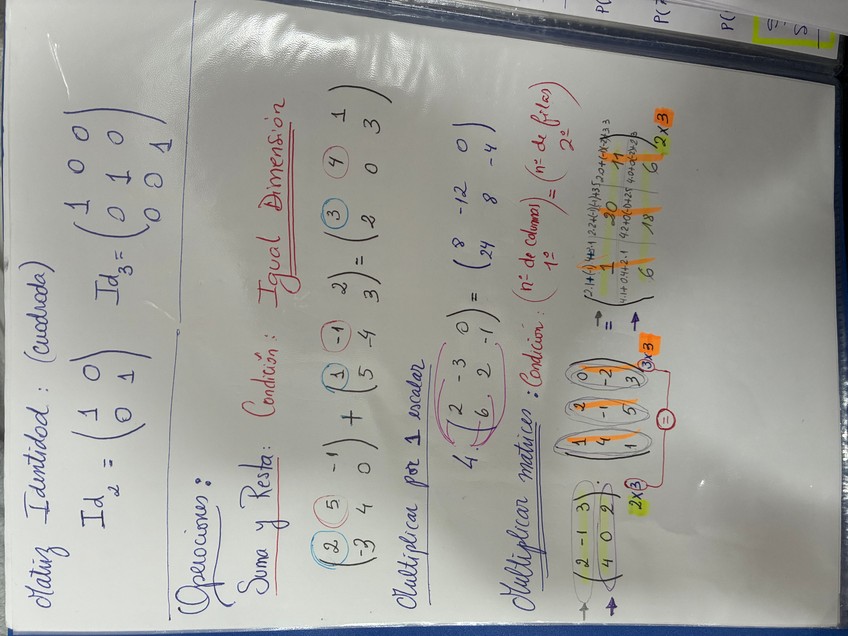 Matriz Identidad: (cuadrada)
Id₂ = (1 0
0 1) Id₃ = (1 0 0
0 1 0
0 0 1)
Operaciones:
Suma y Resta: Condición: Igual Dimensión
(2 5 -1
-3 4 0) + (1 -1 2
5 -4 3) = (3 4 1
2 0 3)
Multiplicar por 1 escalar
4·(2 -3 0
6 2 -1) = (8 -12 0
24 8 -4)
Multiplicar matrices: Condición: (nº de columnas 1º) = (nº de filas 2º)
→ (2 -1 3
→ 4 0 2)· (1 2 0
4 -1 -2
1 5 3) = → (2·1+(-1)·4+3·1 2·2+(-1)(-1)+3·5 2·0+(-1)(-2)+3·3
1 20 11
→ 4·1+0·4+2·1 4·2+0(-1)+2·5 4·0+0(-2)+2·3
6 18 6)
2x3 3x3 2x3
=
P(
P(
P(